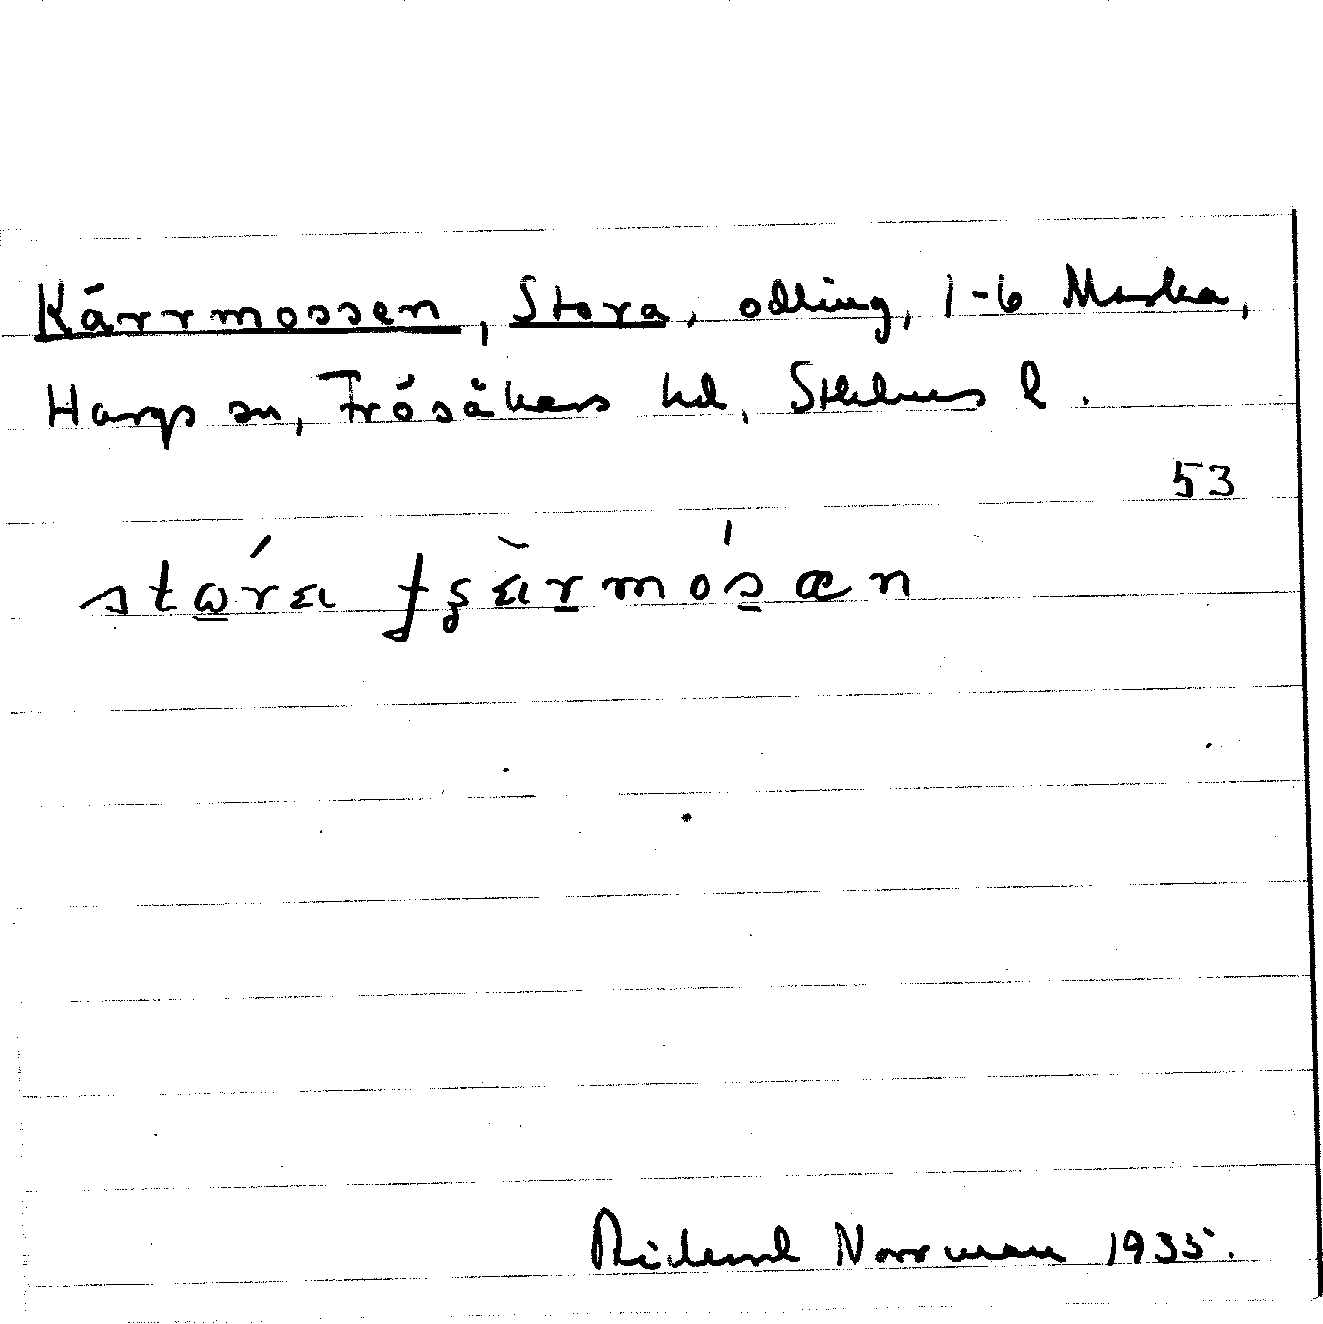 Kärrmossen, Stora, odling, 1-6 Maska,
Hargs sn, Frösåkers hd, Sthlms l.
53
Rickard Norrman 1935.